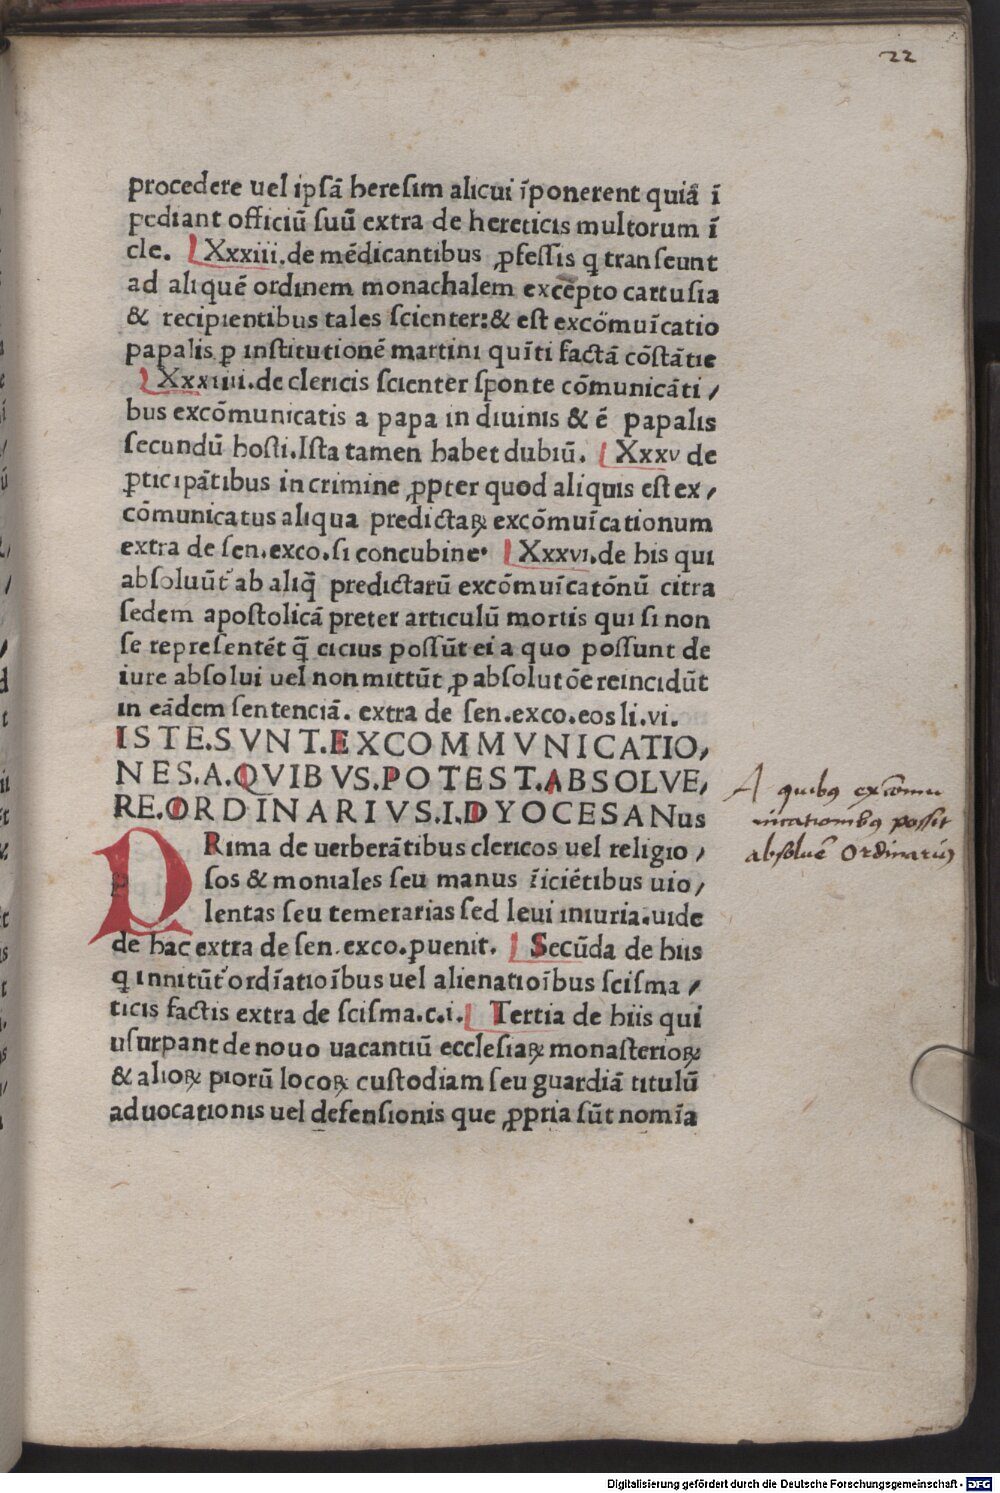 22
procedere uel ipſā hereſim alicui īponerent quiā ī
pediant officiū ſuū extra de hereticis multorum ī
cle. Xxxiii.de mēdicantibus ꝓfeſſis q tranſeunt
ad aliquē ordinem monachalem excepto cartuſia
& recipientibus tales ſcienter:& eſt excōmuīcatio
papalis ꝑ inſtitutionē martini quīti factā cōſtātie
Xxxiiii.de clericis ſcienter ſponte cōmunicāti/
bus excōmunicatis a papa in diuinis & ē papalis
ſecundū hoſti.Iſta tamen habet dubiū. Xxxv de
ꝑticipātibus in crimine ꝓpter quod aliquis eſt ex/
cōmunicatus aliqua predictaꝝ excōmuīcationum
extra de ſen.exco.ſi concubine. Xxxvi.de his qui
abſoluūt ab aliq̄ predictarū excōmuīcatōnū citra
ſedem apoſtolicā preter articulū mortis qui ſi non
ſe repreſentēt q̄ cicius poſſūt ei a quo poſſunt de
iure abſolui uel non mittūt ꝓ abſolutōe reincidūt
in eādem ſentenciā. extra de ſen.exco.eos li.vi.
ISTE.SVNT.EXCOMMVNICATIO/
NES.A.QVIBVS.POTEST.ABSOLVE/
RE.ORDINARIVS.I.DYOCESANus
A quibꝯ excom̄u
nicationibꝯ poſſit
abſoluē Ordinariꝯ
PRima de uerberātibus clericos uel religio/
ſos & moniales ſeu manus īiciētibus uio/
lentas ſeu temerarias ſed leui iniuria.uide
de hac extra de ſen.exco.ꝑuenit. Secūda de hiis
q innitūt ordīatioībus uel alienatioībus ſciſma/
ticis factis extra de ſciſma.c.i. Tertia de hiis qui
uſurpant de nouo uacantiū eccleſiaꝝ monaſterioꝝ
& alioꝝ piorū locoꝝ cuſtodiam ſeu guardiā titulū
aduocationis uel defenſionis que ꝓpria ſūt nomīa
Digitalisierung gefördert durch die Deutsche Forschungsgemeinschaft - DFG